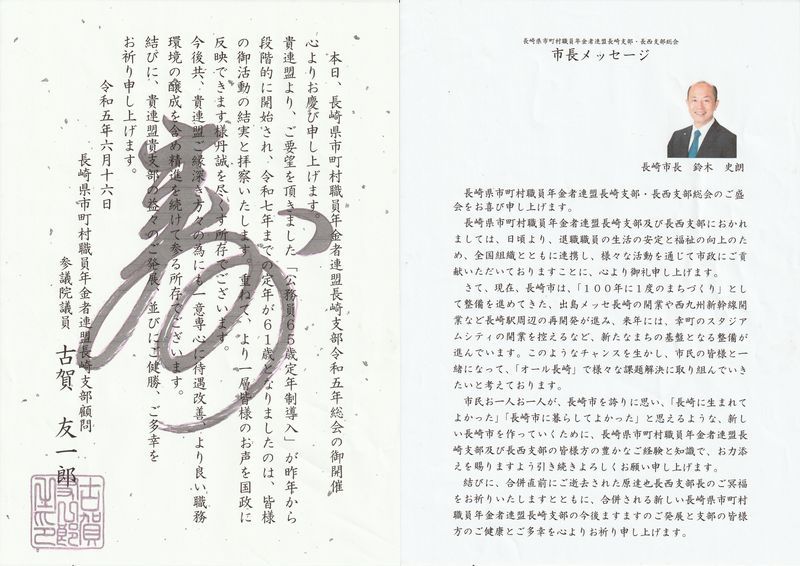 本日、長崎県市町村職員年金者連盟長崎支部令和五年総会の御開催
心よりお慶び申し上げます。
貴連盟より、ご要望を頂きました「公務員65歳定年制導入」が昨年から
段階的に開始され、令和七年までの定年が61歳となりましたのは、皆様
の御活動の結実と拝察いたします。重ねて、より一層皆様のお声を国政に
反映できます様丹誠を尽くす所存でございます。
今後共、貴連盟ご縁深き方々の為にも一意専心に待遇改善、より良い職務
環境の醸成を含め精進を続けて参る所存でございます。
結びに、貴連盟貴支部の益々のご発展、並びにご健勝、ご多幸を
お祈り申し上げます。
令和五年六月十六日
長崎県市町村職員年金者連盟長崎支部顧問
参議院議員 古賀 友一郎
長崎県市町村職員年金者連盟長崎支部・長西支部総会
市長メッセージ
長崎市長 鈴木 史朗
長崎県市町村職員年金者連盟長崎支部・長西支部総会のご盛
会をお喜び申し上げます。
長崎県市町村職員年金者連盟長崎支部及び長西支部におかれ
ましては、日頃より、退職職員の生活の安定と福祉の向上のた
め、全国組織とともに連携し、様々な活動を通じて市政にご貢
献いただいておりますことに、心より御礼申し上げます。
さて、現在、長崎市は、「100年に1度のまちづくり」とし
て整備を進めてきた、出島メッセ長崎の開業や西九州新幹線開
業など長崎駅周辺の再開発が進み、来年には、幸町のスタジア
ムシティの開業を控えるなど、新たなまちの基盤となる整備が
進んでいます。このようなチャンスを生かし、市民の皆様と一
緒になって、「オール長崎」で様々な課題解決に取り組んでいき
たいと考えております。
市民お一人お一人が、長崎市を誇りに思い、「長崎に生まれて
よかった」「長崎市に暮らしてよかった」と思えるような、新し
い長崎市を作っていくために、長崎県市町村職員年金者連盟長
崎支部及び長西支部の皆様方の豊かなご経験と知識で、お力添
えを賜りますよう引き続きよろしくお願い申し上げます。
結びに、合併直前にご逝去された原達也長西支部長のご冥福
をお祈りいたしますとともに、合併される新しい長崎県市町村
職員年金者連盟長崎支部の今後ますますのご発展と支部の皆様
方のご健康とご多幸を心よりお祈り申し上げます。